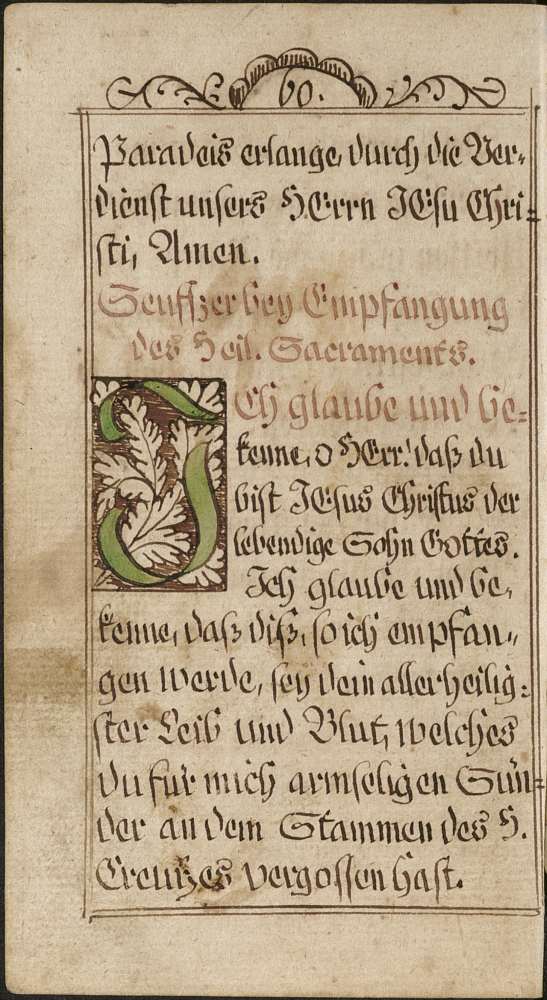 60.
Paradeis erlange, durch die Ver-
dienst unsers HErrn JEsu Chri=
sti, Amen.
Seuffzer bey Empfangung
des Heil. Sacraments.
JCh glaube und be=
kenne, o HErr! daß du
bist JEsus Christus der
lebendige Sohn Gottes.
Jch glaube und be,
kenne, daß diß, so ich empfan,,
gen werde, sey dein allerheilig=
ster Leib und Blut, welches
du für mich armseligen Sün=
der an dem Stammen des H.
Creutzes vergossen hast.